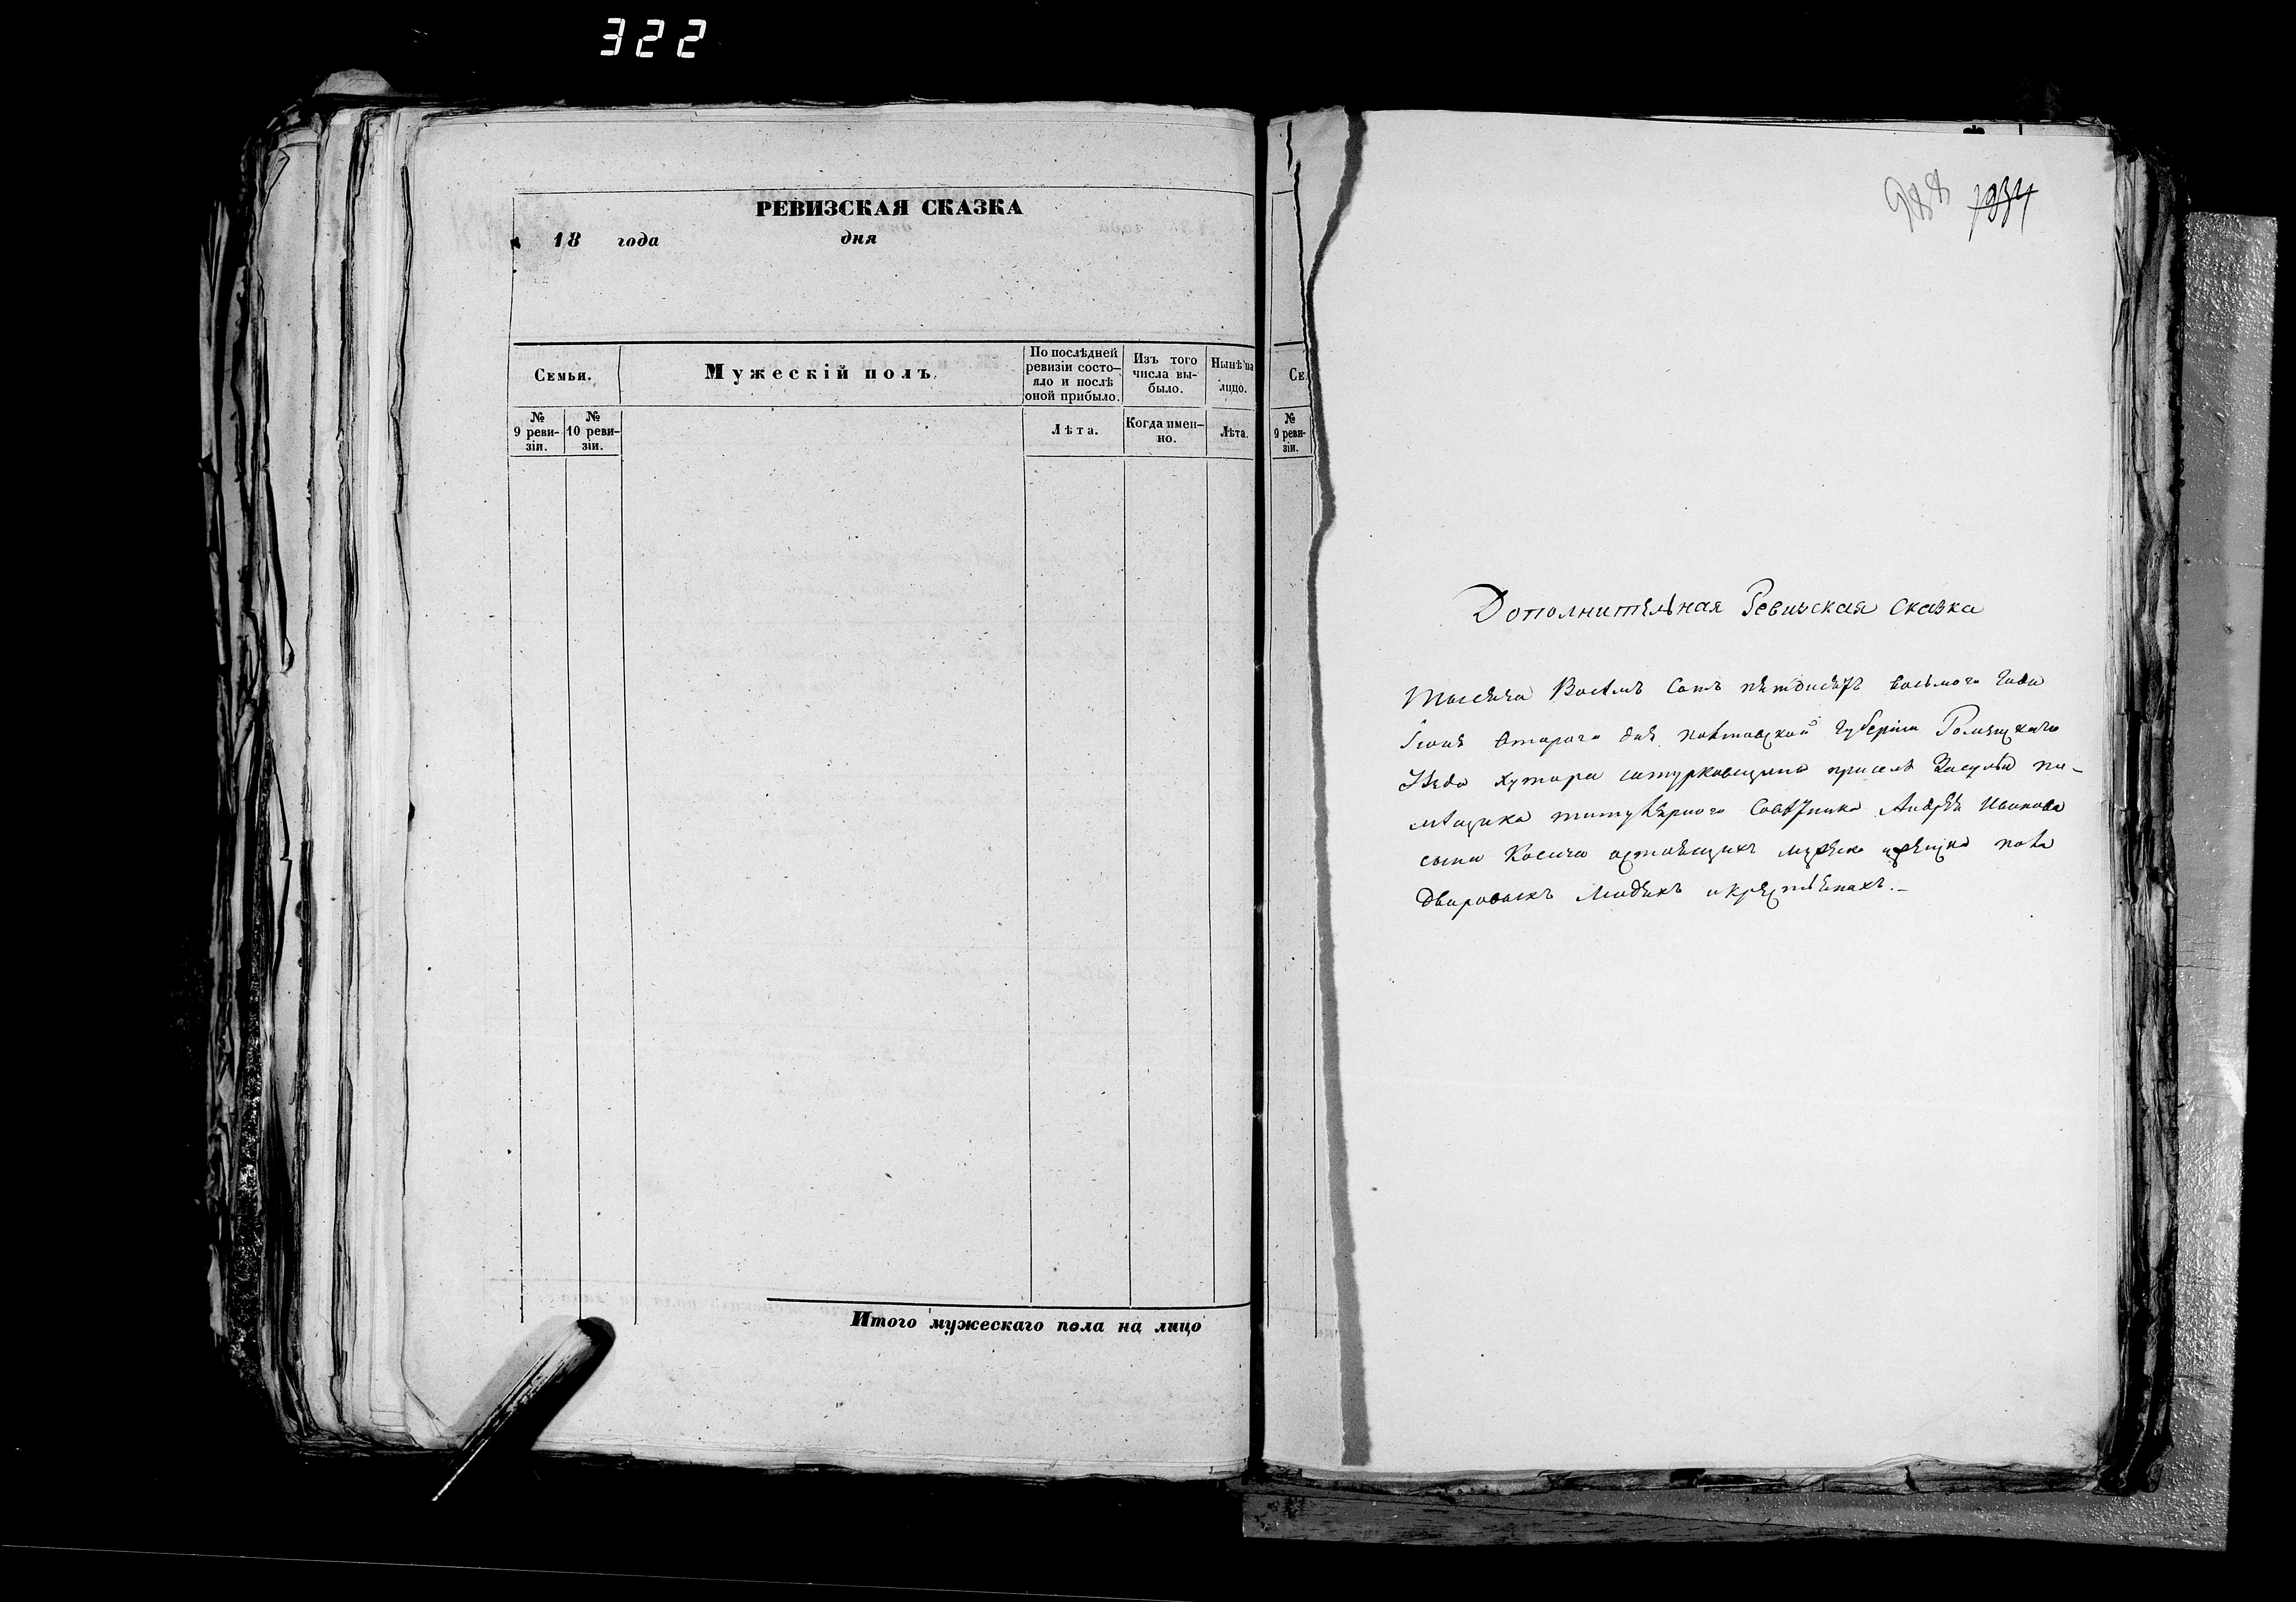 322
РЕВИЗСКАЯ СКАЗКА
18 года дня
Семьи.
Мужескій полъ.
По послѣдней ревизіи состо-
яло и послѣ оной прибыло.
Изъ того числа вы-
было.
Нынѣ на лицо.
№ 9 реви-
зіи.
№ 10 реви-
зіи.
Лѣта.
Когда имен-
но.
Лѣта.
Итого мужескаго пола на лицо
Се
№ 9 реви-
зіи.
988 1934
Дополнительная Ревизская Сказка
Тысяча Восемь Сотъ пятдесятъ восьмого Года
Іюня второго дня Полтавской Губерніи Роменскаго
Уезда хутора сатурковщина при селѣ Засульи по-
мѣщика титулярного Совѣтника Андрѣя Иванова
сына Косича о мужеска и женска пола
дворовыхъ людяхъ и крестьянахъ.-